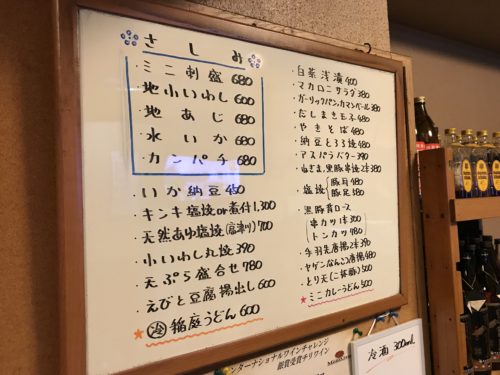 さしみ
・ミニ刺盛 680
・地小いわし 600
・地あじ 680
・水いか 680
・カンパチ 680
・いか納豆 450
・キンキ塩焼or煮付 1,300
・天然あゆ塩焼(唐津川) 700
・小いわし丸焼 390
・天ぷら盛合せ 780
・えびと豆腐揚出し 600
★冷稲庭うどん 600
・白菜浅漬 400
・マカロニサラダ 380
・ガーリックパン、カマンベール 380
・だしまき玉ふ 480
・やきそば 480
・納豆とろろ焼 480
・アスパラバター 390
・ねぎま、黒豚串焼2本 380
・塩焼 豚耳 480
豚足 580
・黒豚肩ロース
串カツ1本 300
トンカツ 980
・手羽先唐揚2本 390
・ヤゲンなんこつ唐揚 480
・とり天(ご飯豚) 500
★ミニカレーうどん 500
ンターナショナルワインチャレンジ
銀賞受賞チリワイン
冷酒 300ml